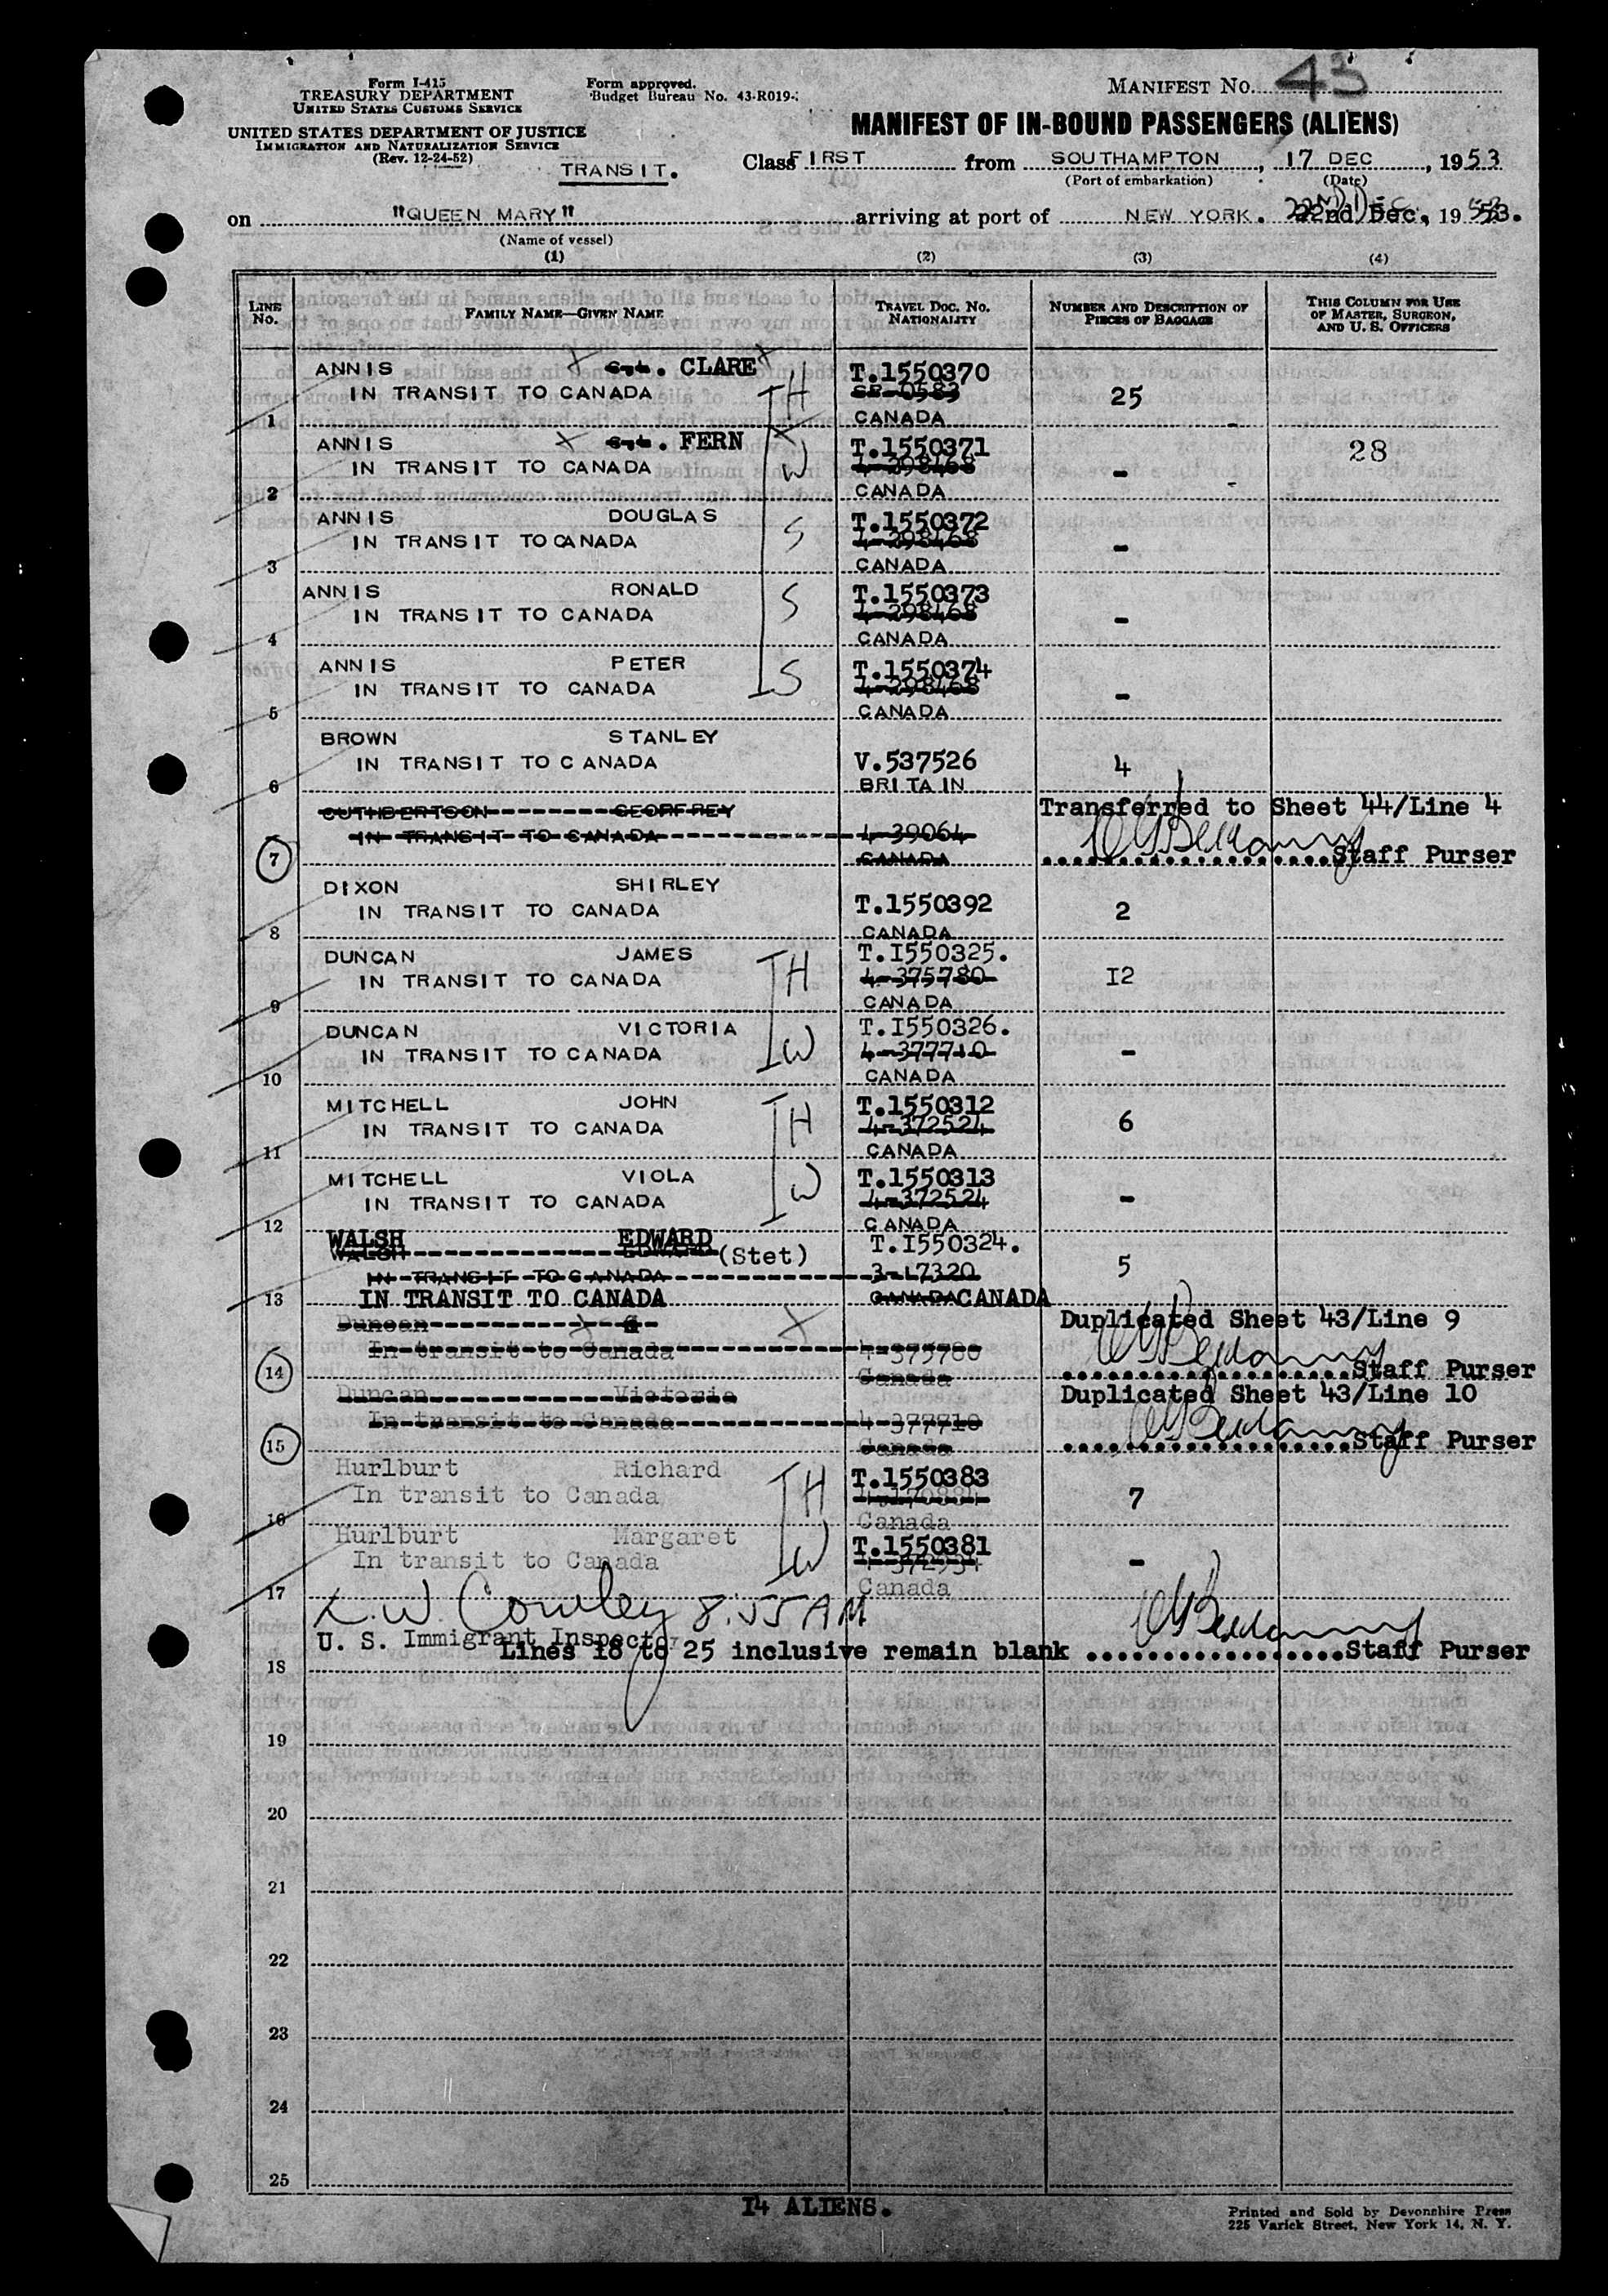 Form I-415
TREASURY DEPARTMENT
UNITED STATES CUSTOMS SERVICE
UNITED STATES DEPARTMENT OF JUSTICE
IMMIGRATION AND NATURALIZATION SERVICE
(Rev. 12-24-52)
Form approved.
Budget Bureau No. 43-R019-
MANIFEST NO. 43
MANIFEST OF IN-BOUND PASSENGERS (ALIENS)
TRANSIT.
Class FIRST from SOUTHAMPTON, 17 DEC, 1953
(Port of embarkation) (Date)
on "QUEEN MARY" arriving at port of NEW YORK. 22nd Dec, 1953.
(Name of vessel)
(1) (2) (3) (4)
LINE No. FAMILY NAME—GIVEN NAME TRAVEL DOC. NO. NATIONALITY NUMBER AND DESCRIPTION OF PIECES OF BAGGAGE THIS COLUMN FOR USE OF MASTER, SURGEON, AND U. S. OFFICERS
ANNIS CLARE H T.1550370
IN TRANSIT TO CANADA SP-0583 25
1 CANADA
ANNIS FERN W T.1550371 28
IN TRANSIT TO CANADA 4-298468 -
2 CANADA
ANNIS DOUGLAS S T.1550372
IN TRANSIT TO CANADA 4-298468 -
3 CANADA
ANNIS RONALD S T.1550373
IN TRANSIT TO CANADA 4-298468 -
4 CANADA
ANNIS PETER S T.1550374
IN TRANSIT TO CANADA 4-298468 -
5 CANADA
BROWN STANLEY
IN TRANSIT TO CANADA V.537526 4
6 BRITAIN
CUTHBERTSON GEOFFREY Transferred to Sheet 44/Line 4
IN TRANSIT TO CANADA 4-39064
7 CANADA Staff Purser
DIXON SHIRLEY
IN TRANSIT TO CANADA T.1550392 2
8 CANADA
DUNCAN JAMES H T.I550325.
IN TRANSIT TO CANADA 4-375780 I2
9 CANADA
DUNCAN VICTORIA W T.I550326.
IN TRANSIT TO CANADA 4-377710 -
10 CANADA
MITCHELL JOHN H T.1550312
IN TRANSIT TO CANADA 4-372524 6
11 CANADA
MITCHELL VIOLA W T.1550313
IN TRANSIT TO CANADA 4-372524 -
12 CANADA
WALSH EDWARD T.I550324.
WALSH EDWARD (Stet)
IN TRANSIT TO CANADA 3-17320 5
13 IN TRANSIT TO CANADA CANADA CANADA
Duncan Duplicated Sheet 43/Line 9
In transit to Canada 4-375780
14 Canada Staff Purser
Duncan Victoria Duplicated Sheet 43/Line 10
In transit to Canada 4-377710
15 Canada Staff Purser
Hurlburt Richard H T.1550383
In transit to Canada 7
16 Canada
Hurlburt Margaret W T.1550381
In transit to Canada -
17 Canada
L.W. Cowley 8.55 AM
U. S. Immigrant Inspector
Lines 18 to 25 inclusive remain blank Staff Purser
18
19
20
21
22
23
24
25
I4 ALIENS.
Printed and Sold by Devonshire Press
225 Varick Street, New York 14, N. Y.